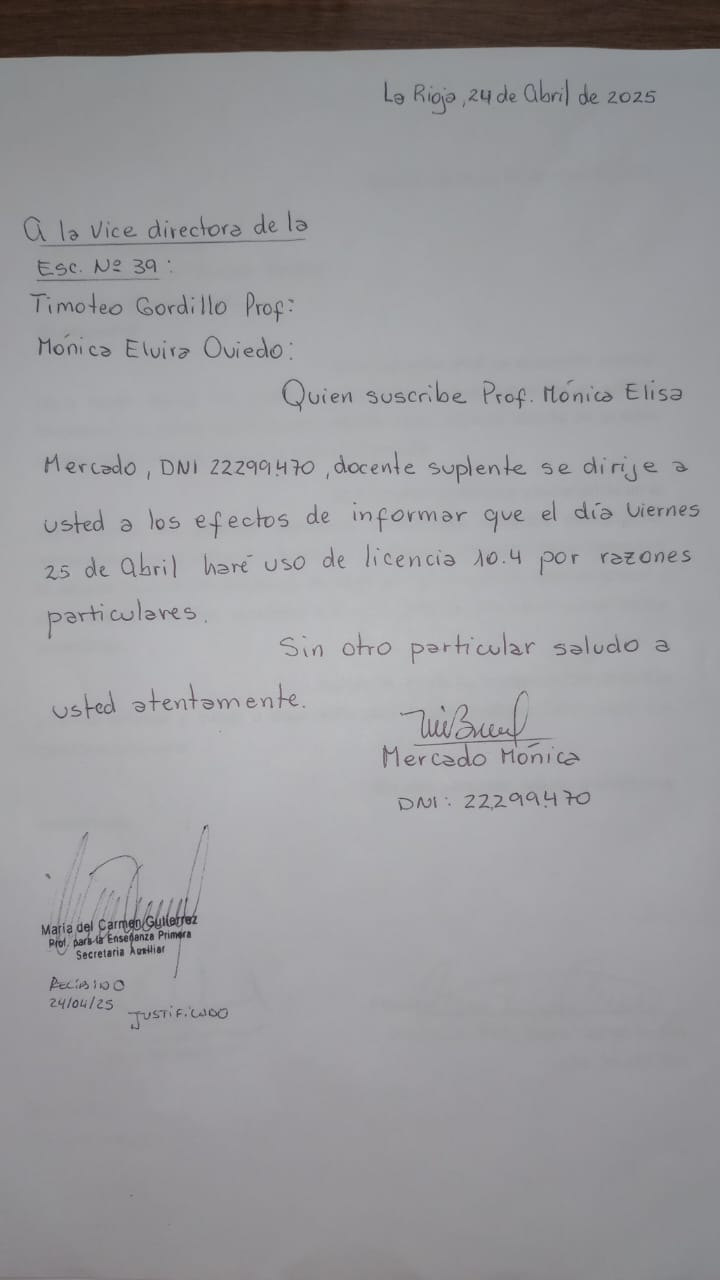 La Rioja, 24 de Abril de 2025
A la Vice directora de la
Esc. Nº 39 :
Timoteo Gordillo Prof:
Mónica Elvira Oviedo:
Quien suscribe Prof. Mónica Elisa
Mercado, DNI 22299.470, docente suplente se dirije a
usted a los efectos de informar que el día Viernes
25 de Abril haré uso de licencia 10.4 por razones
particulares.
Sin otro particular saludo a
usted atentamente.
Mercado Mónica
DNI: 22.299.470
Maria del Carmen Gutierrez
Prof. para la Enseñanza Primera
Secretaria Auxiliar
RECIBIDO
24/04/25
JUSTIFICADO